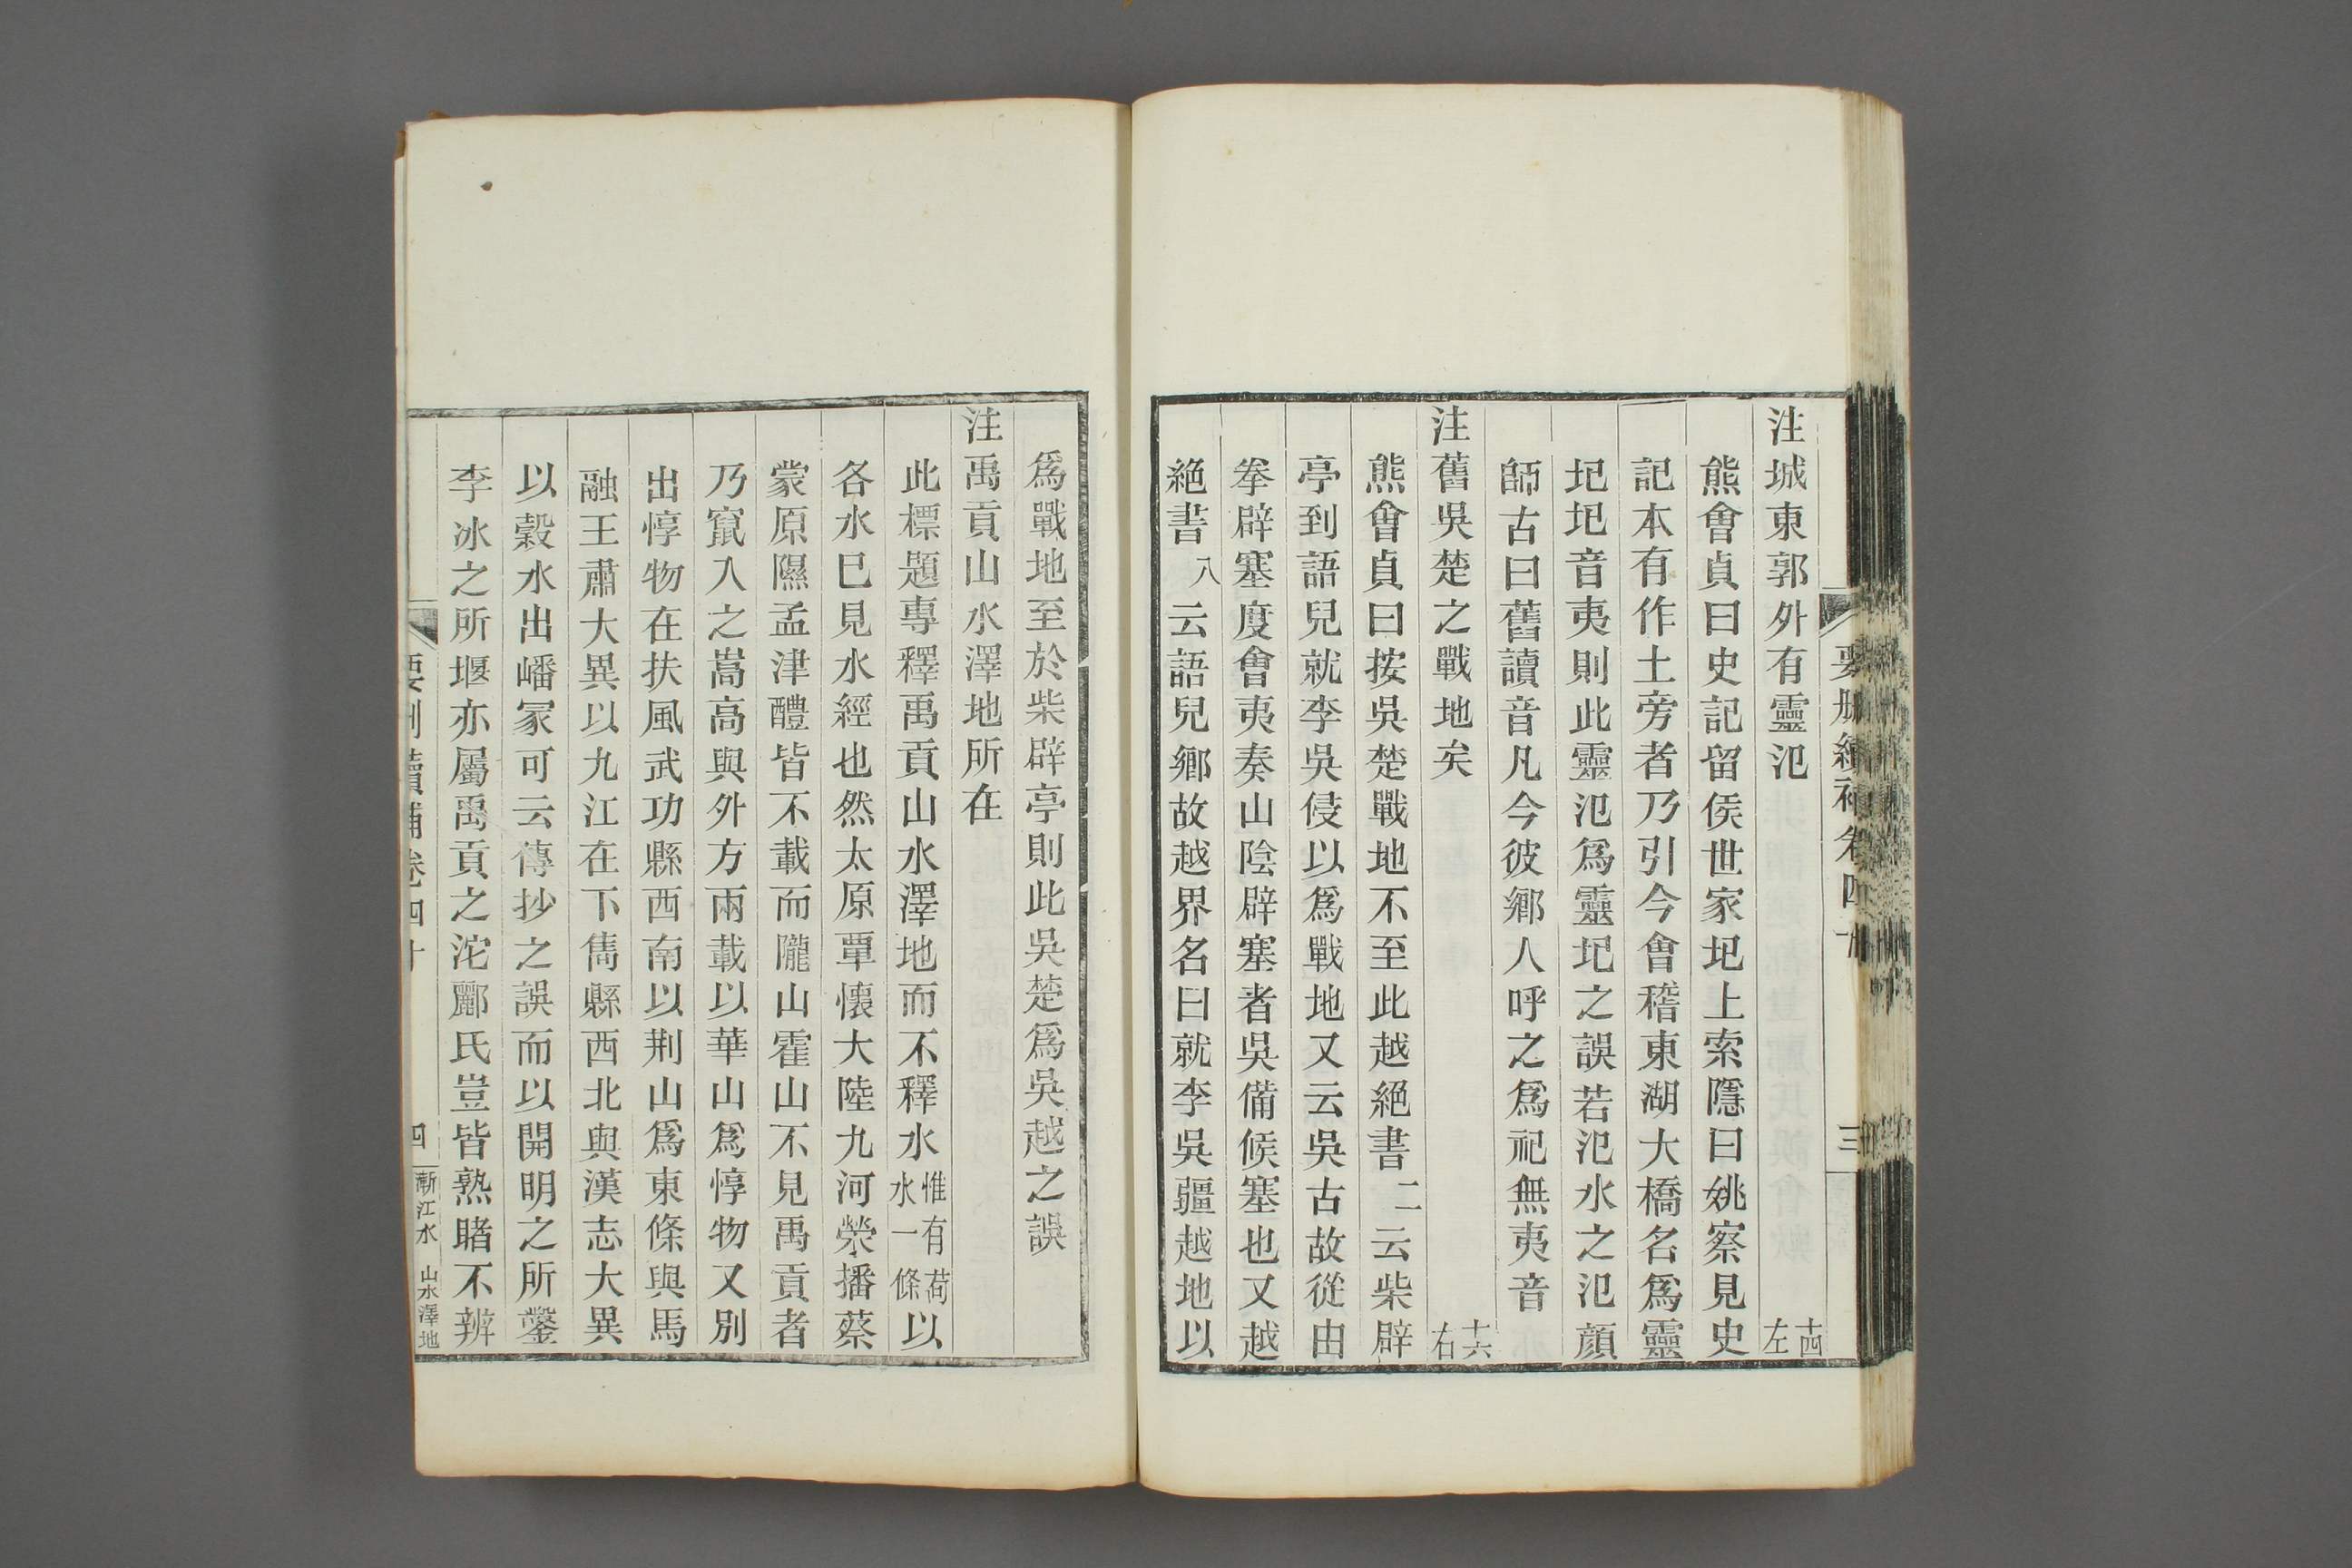 要刪續補卷四十
三
注城東郭外有靈氾 十四左
熊會貞曰史記留侯世家圯上索隱曰姚察見史
記本有作土旁者乃引今會稽東湖大橋名爲靈
圯圯音夷則此靈氾爲靈圯之誤若氾水之氾顏
師古曰舊讀音凡今彼鄉人呼之爲祀無夷音
注舊吳楚之戰地矣 十六右
熊會貞曰按吳楚戰地不至此越絕書二云柴辟
亭到語兒就李吳侵以爲戰地又云吳古故從由
拳辟塞度會夷奏山陰辟塞者吳備候塞也又越
絕書八云語兒鄉故越界名曰就李吳疆越地以
爲戰地至於柴辟亭則此吳楚爲吳越之誤
注禹貢山水澤地所在
此標題專釋禹貢山水澤地而不釋水惟有荷水一條以
各水已見水經也然太原覃懷大陸九河滎播蔡
蒙原隰孟津醴皆不載而隴山霍山不見禹貢者
乃竄入之嵩高與外方兩載以華山爲惇物又別
出惇物在扶風武功縣西南以荆山爲東條與馬
融王肅大異以九江在下雋縣西北與漢志大異
以穀水出嶓冢可云傳抄之誤而以開明之所鑿
李冰之所堰亦屬禹貢之沱酈氏豈皆熟睹不辨
要刪續補卷四十
四
漸江水 山水澤地